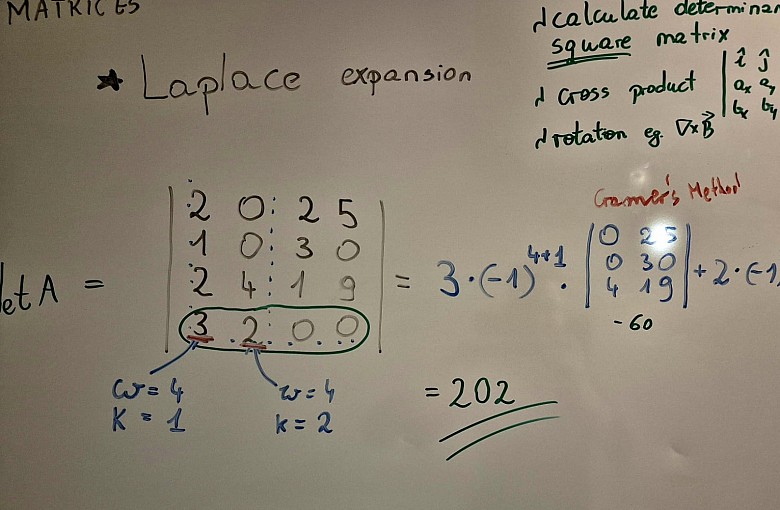 MATRICES
* Laplace expansion
calculate determinan
square matrix
cross product | î ĵ
ax ay
bx by
rotation eg. ∇×B⃗
Cramer's Method
det A = | 2 0 2 5 | = 3·(-1)^4+1 · | 0 2 5 | + 2·(-1)
| 1 0 3 0 |
| 2 4 1 9 |
| 3 2 0 0 |
| 0 3 0 |
| 4 1 9 |
-60
w=4
K=1
w=4
k=2
= 202